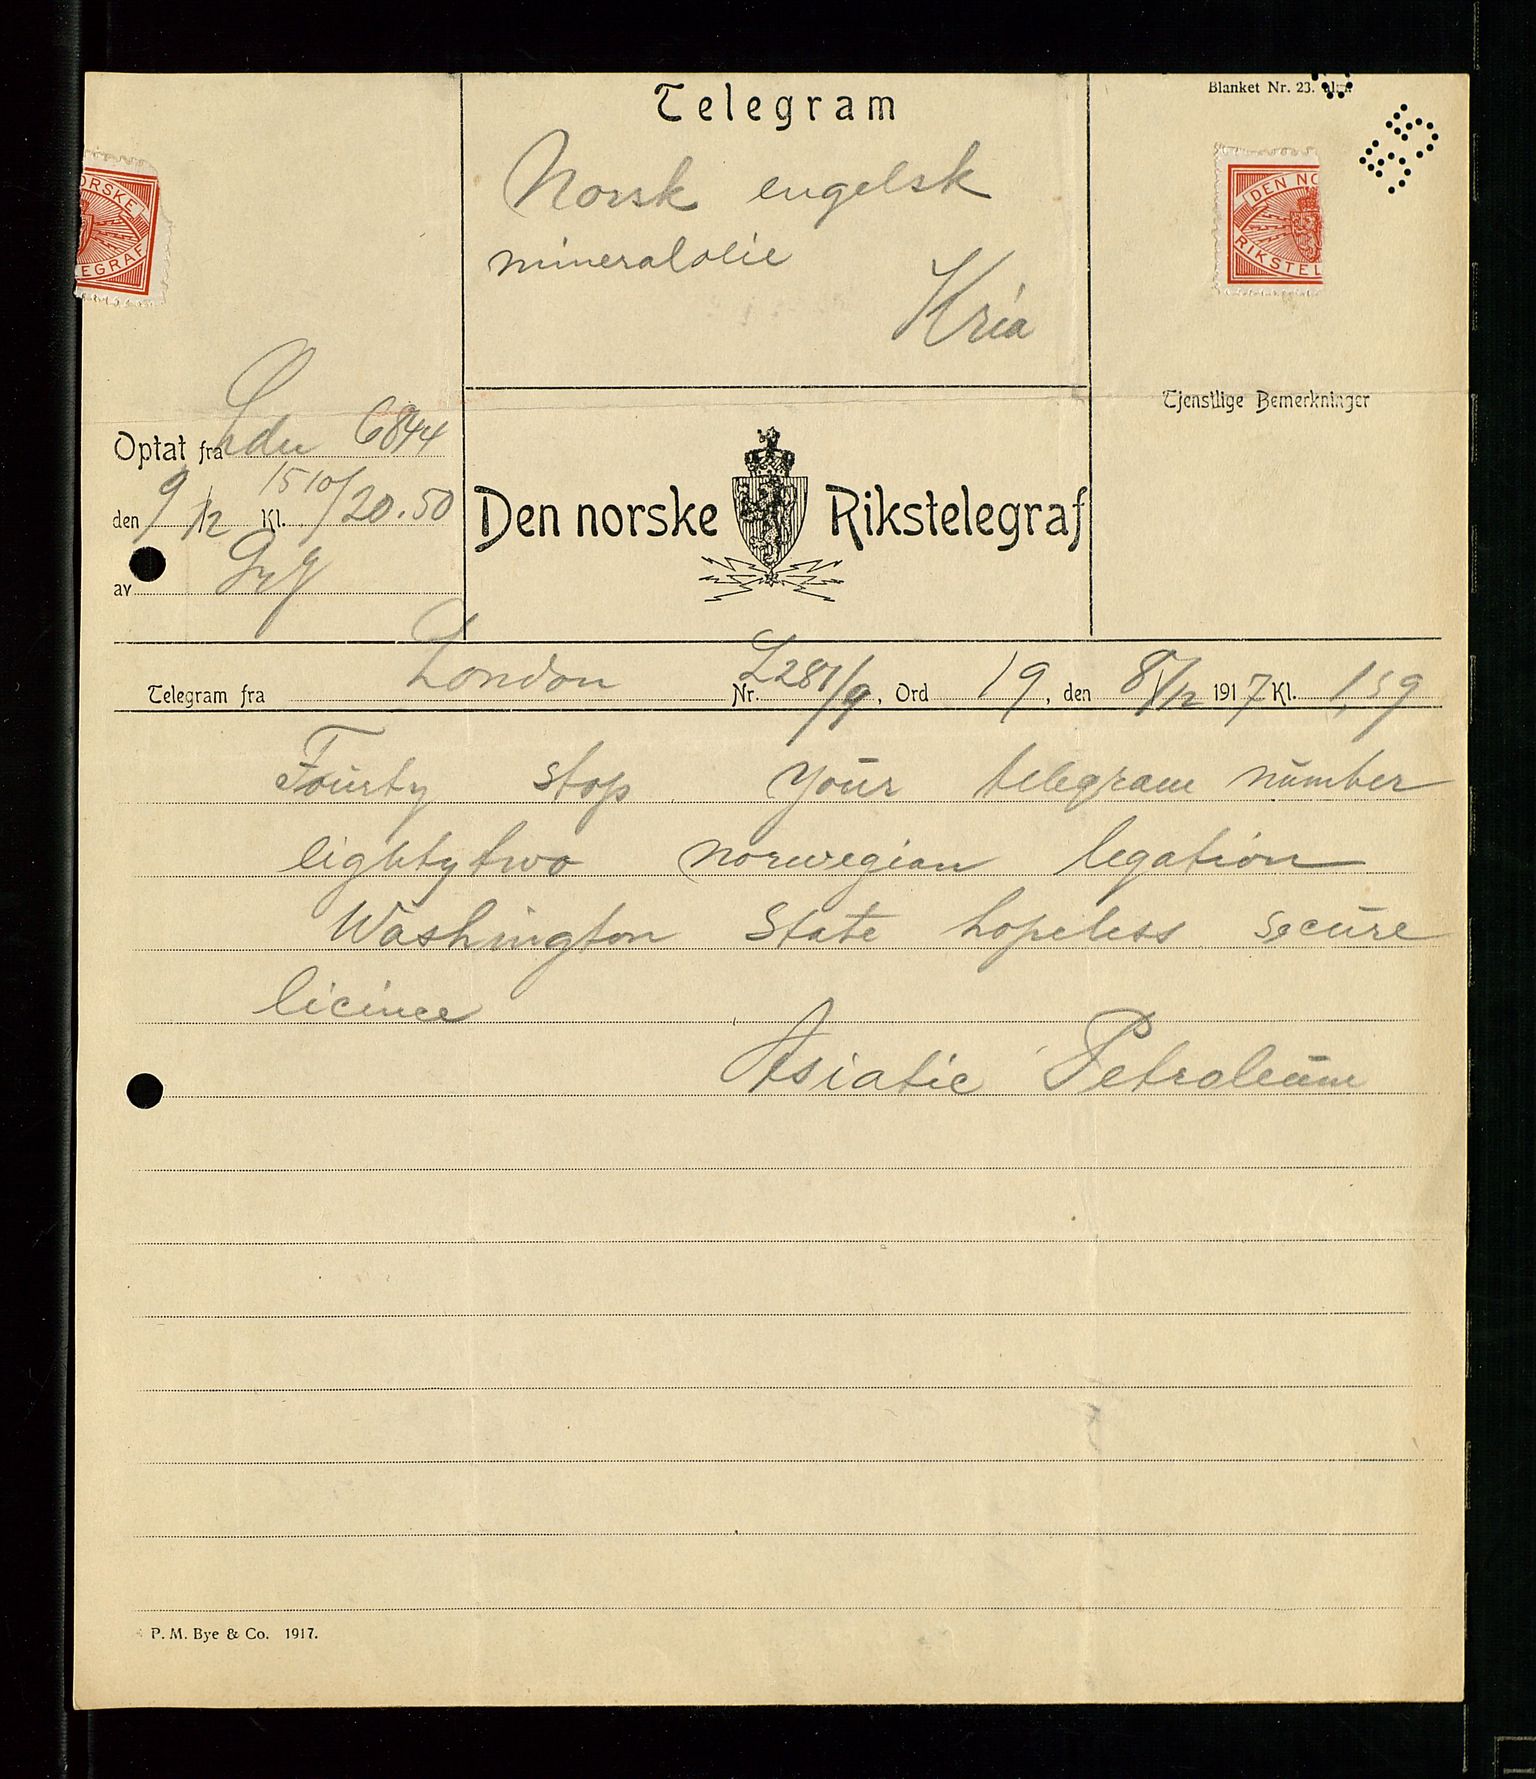 Telegram
Blanket Nr. 23.
Norsk engelsk
mineralolie
Kria
ORSKE
EGRAF
DEN NO
RIKSTEL
Tjenstlige Bemerkninger
Optat fra Ldn 6844
den 9/12 Kl. 1510/20.50
av
Den norske Rikstelegraf
Telegram fra London Nr. L281/9, Ord 19, den 8/12 1917 Kl. 1,59
Fourty stop your telegram number
eightytwo norwegian legation
Washington State hopeless secure
licince
Asiatic Petroleum
P. M. Bye & Co. 1917.